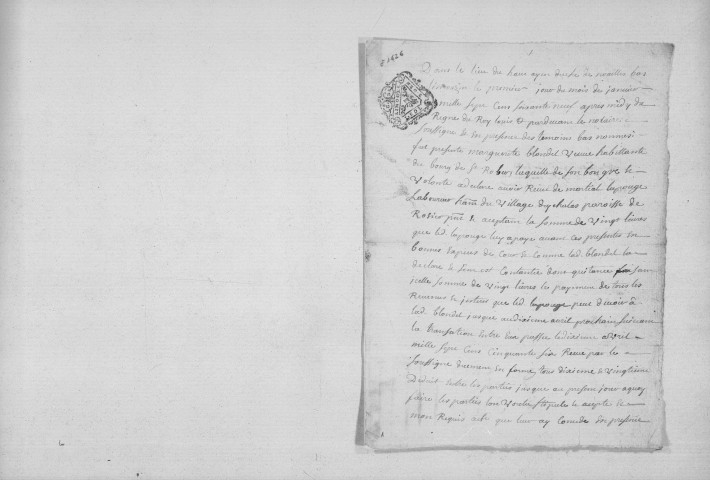 E 1626
1
Dans le lieu de haut ayen duché de noailles bas
Limouzin le premier jour du mois de janvier
mille sept cens soixante neuf apres midy du
Regne du Roy louis & pardevant le notaire
soussigne & en presence des temoins bas nommes
fut presente marguerite blondel veuve habittante
du bourg de St Robert laquelle de son bon gre &
volonte a declare avoir Receu de martial lapouge
Laboureur hant du village paroisse de
Rosier pnt & aceptant la somme de vingt livres
que led lapouge luy a paye avant ces presentes en
bonnes Especes de cour & comme lad. blondel la
declare & sen est Contantée dont quitance
icelle somme de vingt livres les payemen de tous les
Revenus & jouties que led lapouge peut devoir à
lad. blondel jusque au dixieme avril prochain suivant
la transation entre eux passée le dixieme avril
mille sept cens cinquante six Receue par le
soussigne duement En forme, tous dixieme & vingtieme
Deduit entre les parties jusque au present jour a quoy
faire les parties l'ont voulu stipulé & acepté &
mon Requis acte que leur ay concede En presence